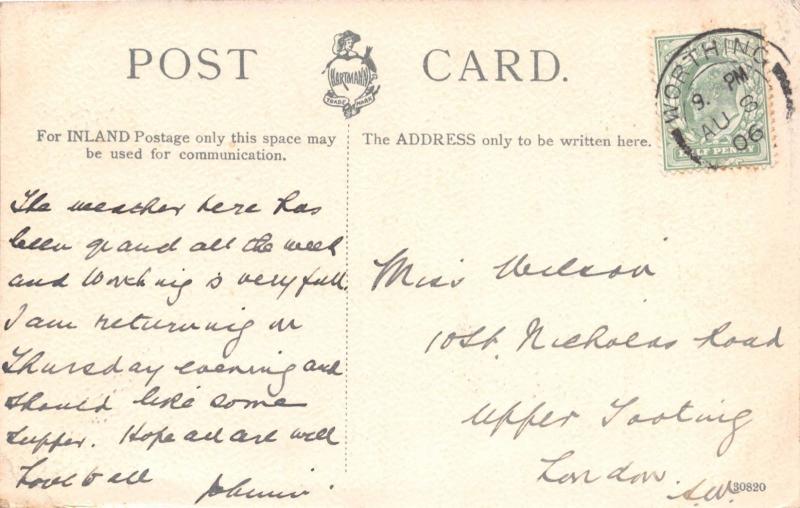 POST CARD.
HARTMANN
TRADE MARK
For INLAND Postage only this space may
be used for communication.
The ADDRESS only to be written here.
WORTHING
9. PM
AU 8
06
HALF PENNY
The weather here has
been grand all the week
and Worthing is very full.
I am returning on
Thursday evening and
should like some
supper. Hope all are well
Love to all
Miss Wilson
10 St. Nicholas Road
Upper Tooting
London.
S.W.
30820